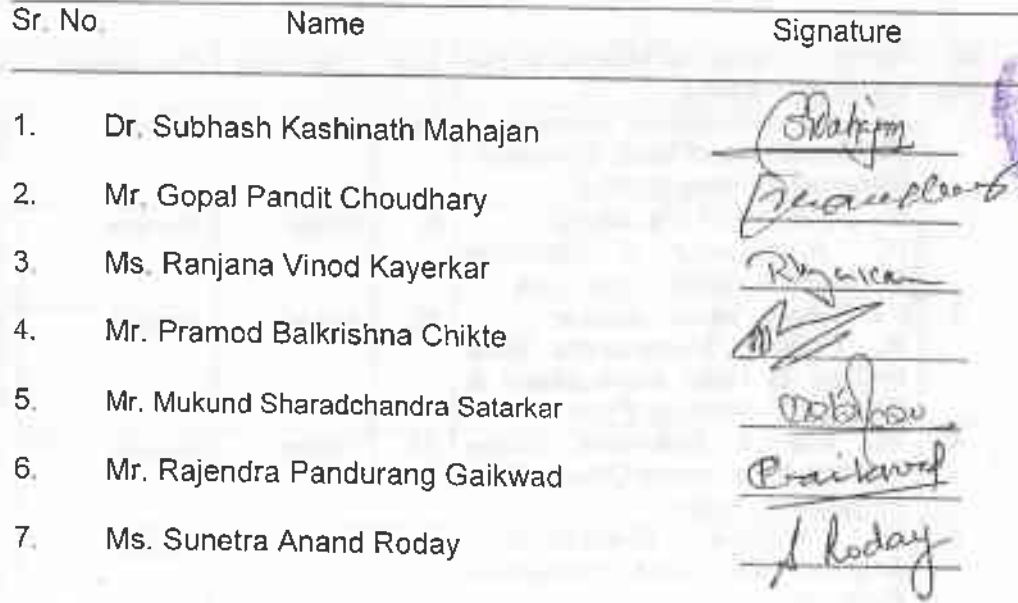 Sr. No. Name Signature
1. Dr. Subhash Kashinath Mahajan SMahajan
2. Mr. Gopal Pandit Choudhary
3. Ms. Ranjana Vinod Kayerkar
4. Mr. Pramod Balkrishna Chikte
5. Mr. Mukund Sharadchandra Satarkar
6. Mr. Rajendra Pandurang Gaikwad Gaikwad
7. Ms. Sunetra Anand Roday S Roday